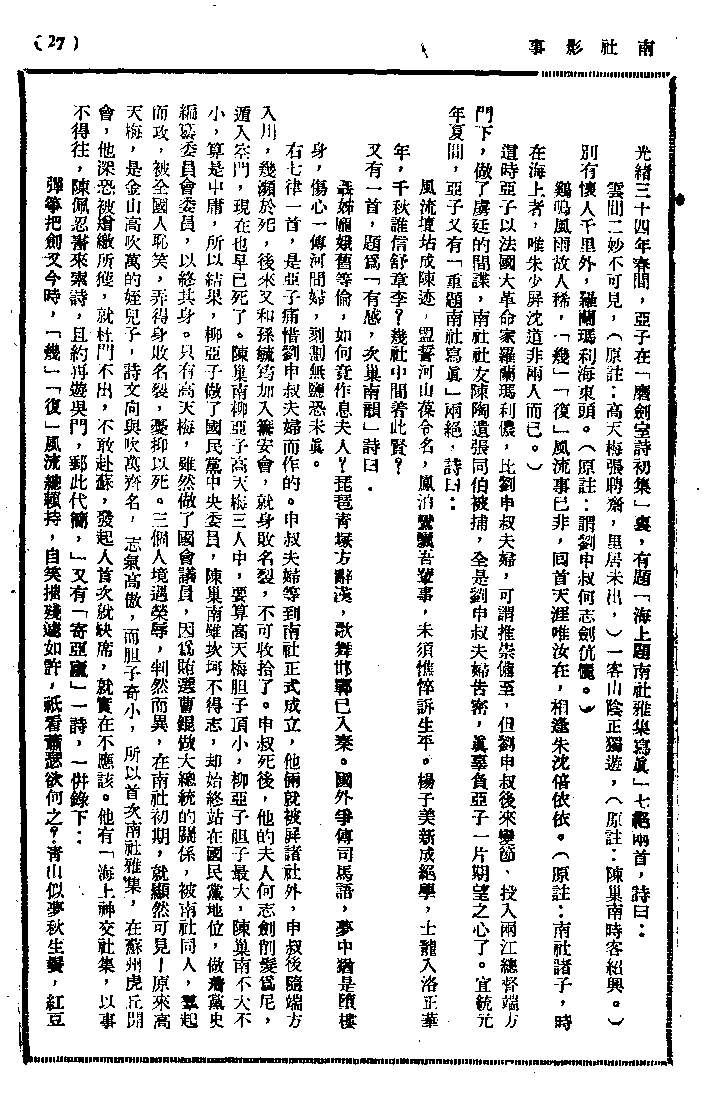 南社影事
(27)
光緒三十四年春間，亞子在「磨劍室詩初集」裏，有題「海上題南社雅集寫眞」七絕兩首，詩曰：
雲間二妙不可見，（原註：高天梅張聘齋，里居未出，）一客山陰正獨遊，（原註：陳巢南時客紹興。）
別有懷人千里外，羅蘭瑪利海東頭。（原註：謂劉申叔何志劍伉儷。）
鷄鳴風雨故人稀，「幾」「復」風流事已非，回首天涯唯汝在，相逢朱沈倍依依。（原註：南社諸子，時
在海上者，唯朱少屏沈道非兩人而已。）
這時亞子以法國大革命家羅蘭瑪利儂，比劉申叔夫婦，可謂推崇備至，但劉申叔後來變節、投入兩江總督端方
門下，做了虜廷的間諜，南社社友陳陶遺張同伯被捕，全是劉申叔夫婦告密，眞辜負亞子一片期望之心了。宣統元
年夏間，亞子又有「重題南社寫眞」兩絕，詩曰：
風流壇坫成陳迹，盟誓河山葆令名，鳳泊鸞飄吾輩事，未須憔悴訴生平。楊子美新成絕學，士龍入洛正華
年，千秋誰信舒章李？幾社中間著此賢？
又有一首，題爲「有感，次巢南韻」詩曰．
義姊嫦娥舊等倫，如何竟作息夫人？琵琶青塚方辭漢，歌舞邯鄲已入秦。國外爭傳司馬語，夢中猶是墮樓
身，傷心一傳河間婦，刻劃無鹽恐未眞。
右七律一首，是亞子痛惜劉申叔夫婦而作的。申叔夫婦等到南社正式成立，他倆就被屏諸社外，申叔後隨端方
入川，幾瀕於死，後來又和孫毓筠加入籌安會，就身敗名裂，不可收拾了。申叔死後，他的夫人何志劍削髮爲尼，
遁入空門，現在也早已死了。陳巢南柳亞子高天梅三人中，要算高天梅胆子頂小，柳亞子胆子最大，陳巢南不大不
小，算是中庸，所以結果，柳亞子做了國民黨中央委員，陳巢南雖坎坷不得志，却始終站在國民黨地位，做黨史
編纂委員會委員，以終其身。只有高天梅，雖然做了國會議員，因爲賄選曹錕做大總統的關係，被南社同人，羣起
而攻，被全國人恥笑，弄得身敗名裂，憂抑以死。三個人境遇榮辱，判然而異，在南社初期，就顯然可見！原來高
天梅，是金山高吹萬的姪兒子，詩文向與吹萬齊名，志氣高傲，而胆子奇小，所以首次南社雅集，在蘇州虎丘開
會，他深恐被繒繳所獲，就杜門不出，不敢赴蘇，發起人首次就缺席，就實在不應該。他有「海上神交社集，以事
不得往，陳佩忍書來索詩，且約再遊吳門，郵此代簡，」又有「寄亞廬」一詩，一併錄下：
彈箏把劍又今時，「幾」「復」風流總賴持，自笑摧殘遽如許，祇看蕭瑟欲何之？青山似夢秋生鬢，紅豆